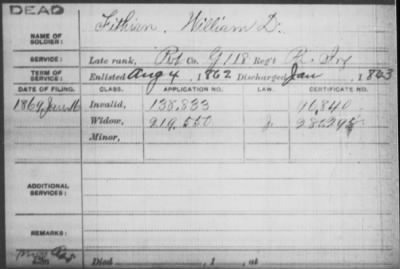 DEAD
NAME OF SOLDIER: Fithian, William D.
SERVICE: Late rank, Pvt Co. G 118 Reg't Inf
TERM OF SERVICE: Enlisted Aug 4, 1862 Discharged Jan, 1863
DATE OF FILING. CLASS. APPLICATION NO. LAW. CERTIFICATE NO.
1869, Jan 16 Invalid, 138,833
Widow, 219,550
Minor,
ADDITIONAL SERVICES:
REMARKS:
Died, 1, at